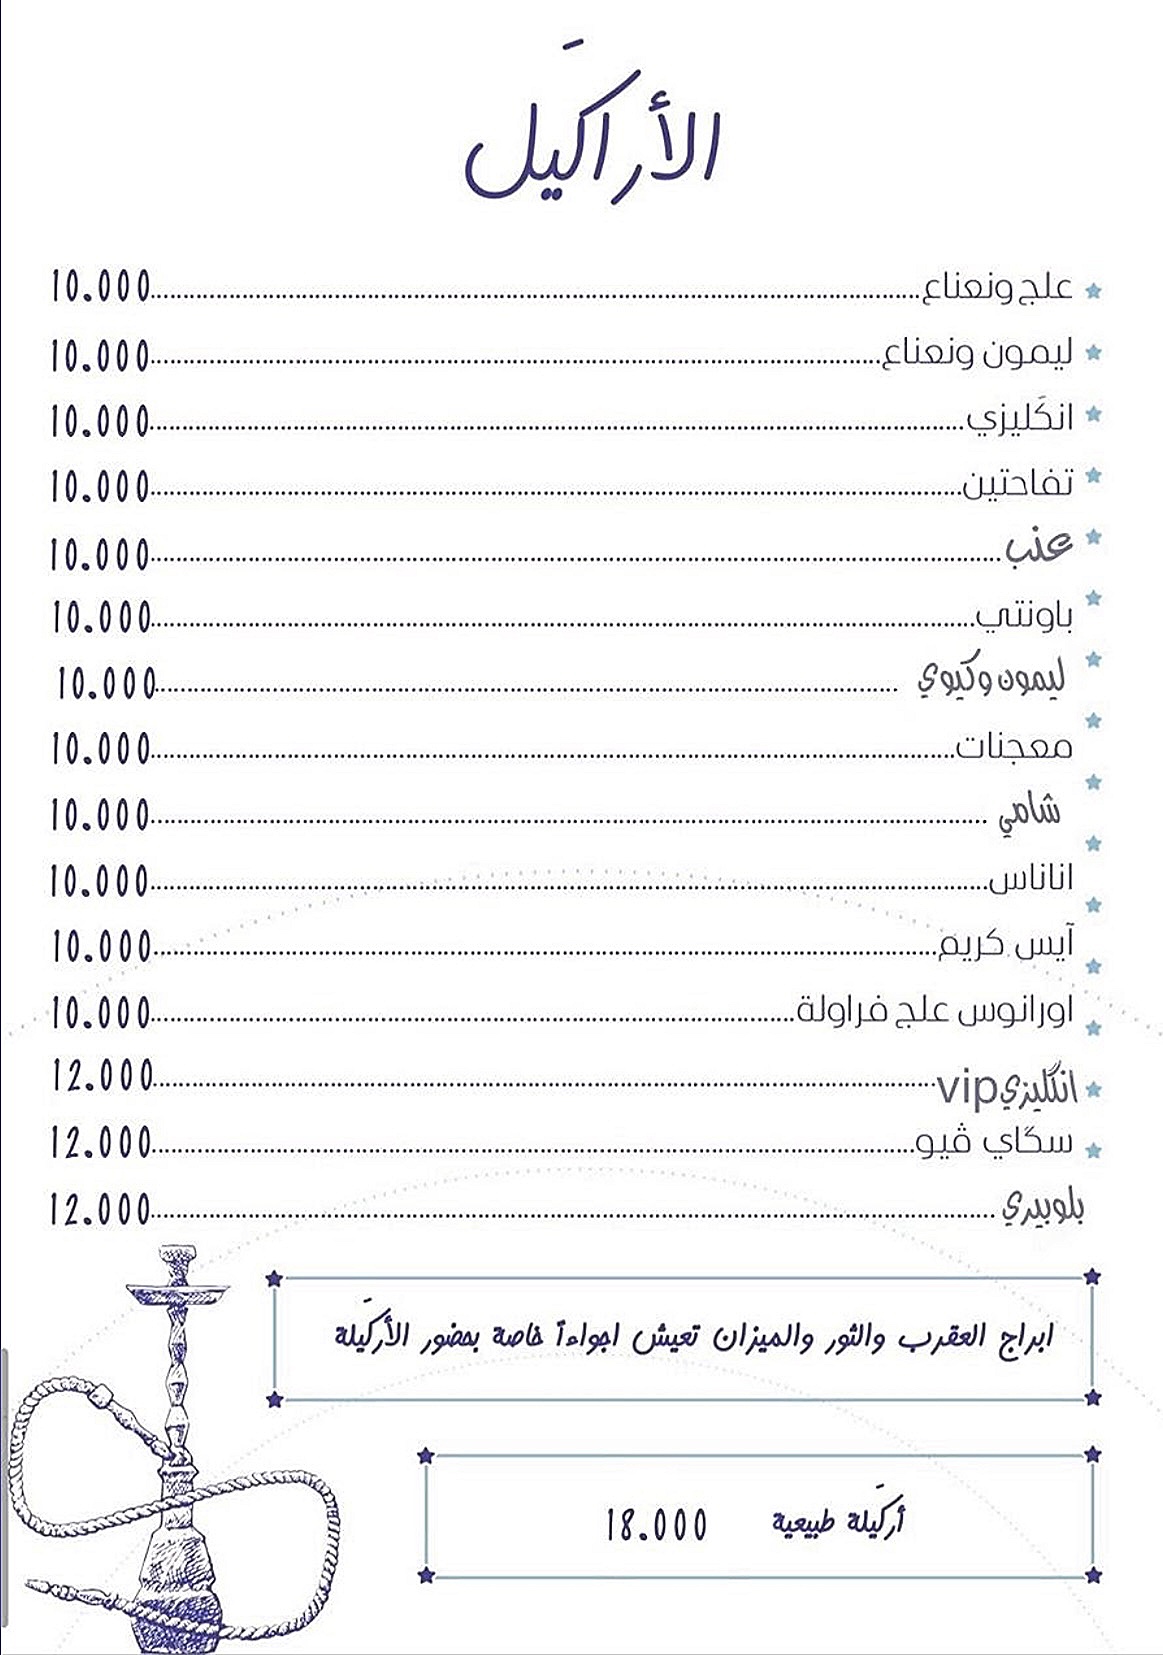 الأراكَيل
علج ونعناع 10.000
ليمون ونعناع 10.000
انكَليزي 10.000
تفاحتين 10.000
عنب 10.000
باونتي 10.000
ليمون وكيوي 10.000
معجنات 10.000
شامي 10.000
اناناس 10.000
آيس كريم 10.000
اورانوس علج فراولة 10.000
انگليزي vip 12.000
سگاي ڤيو 12.000
بلوبيري 12.000
ابراج العقرب والثور والميزان تعيش اجواءاً خاصة بحضور الأركَيلة
أركَيلة طبيعية 18.000